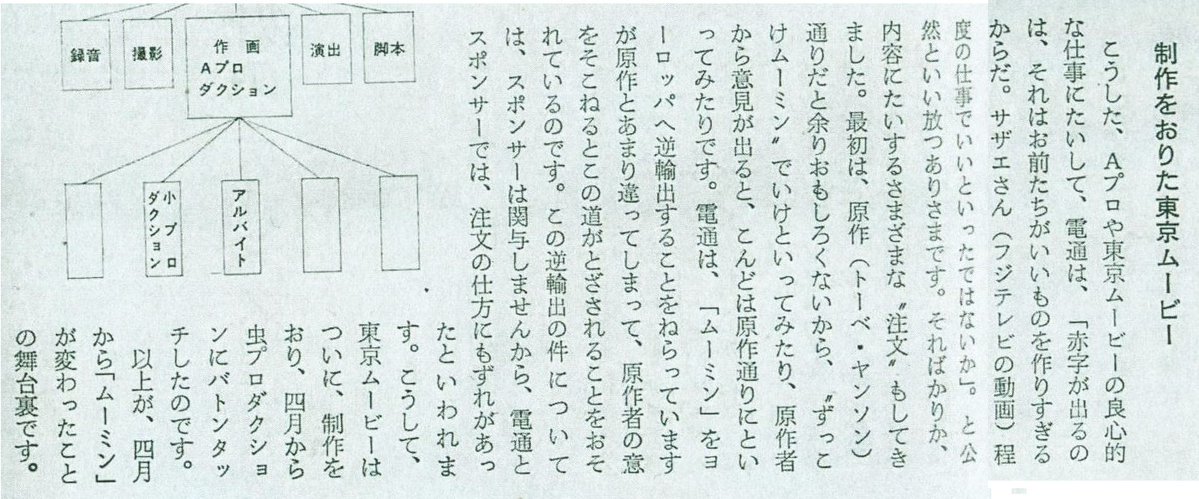 制作をおりた東京ムービー
こうした、Aプロや東京ムービーの良心的
な仕事にたいして、電通は、「赤字が出るの
は、それはお前たちがいいものを作りすぎる
からだ。サザエさん（フジテレビの動画）程
度の仕事でいいといったではないか」。と公
然といい放つありさまです。そればかりか、
内容にたいするさまざまな〝注文〟もしてき
ました。最初は、原作（トーベ・ヤンソン）
通りだと余りおもしろくないから、〝ずっこ
けムーミン〟でいけといってみたり、原作者
から意見が出ると、こんどは原作通りにとい
ってみたりです。電通は、「ムーミン」をヨ
ーロッパへ逆輸出することをねらっています
が原作とあまり違ってしまって、原作者の意
をそこねるとこの道がとざされることをおそ
れているのです。この逆輸出の件について
は、スポンサーは関与しませんから、電通と
スポンサーでは、注文の仕方にもずれがあっ
たといわれま
す。こうして、
東京ムービーは
ついに、制作を
おり、四月から
虫プロダクショ
ンにバトンタッ
チしたのです。
以上が、四月
から「ムーミン」
が変わったこと
の舞台裏です。
録音
撮影
作画
Aプロ
ダクション
演出
脚本
小プロ
ダクション
アルバイト